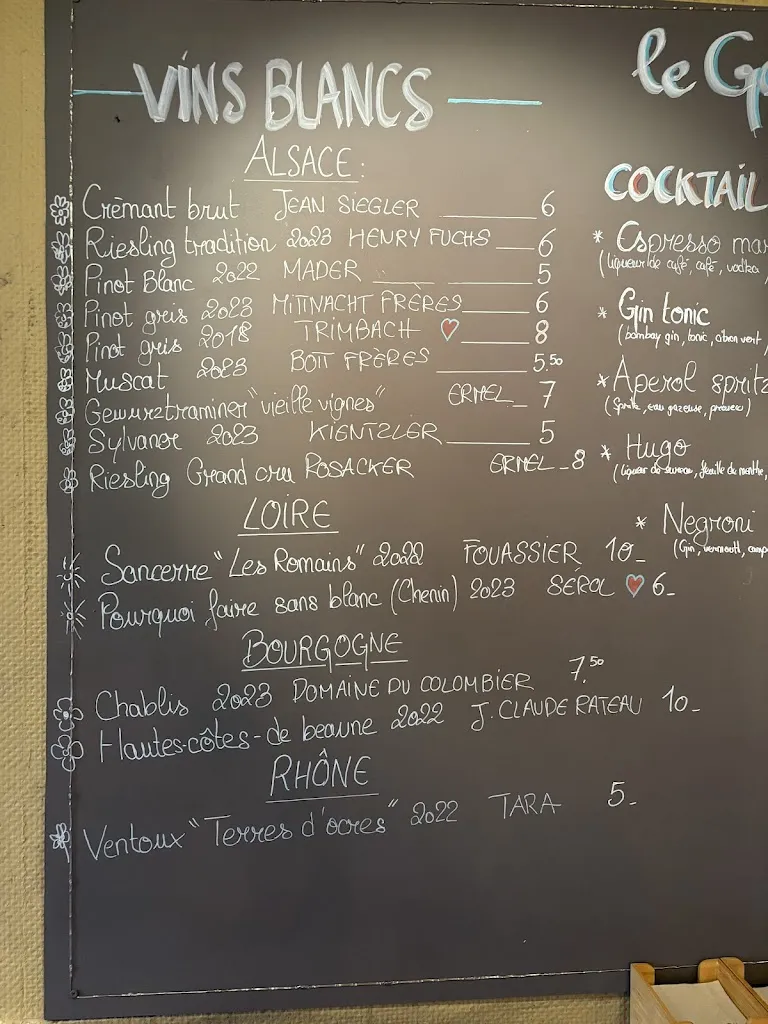 VINS BLANCS
ALSACE:
Crémant brut JEAN SIEGLER 6
Riesling tradition 2023 HENRY FUCHS 6
Pinot Blanc 2022 MADER 5
Pinot gris 2023 MITTNACHT FRÈRES 6
Pinot gris 2018 TRIMBACH 8
Muscat 2023 BOTT FRÈRES 5.50
Gewurztraminer "vieille vignes" ERMEL 7
Sylvaner 2023 KIENTZLER 5
Riesling Grand cru ROSACKER ERMEL 8
LOIRE
Sancerre "Les Romains" 2022 FOUASSIER 10
Pourquoi faire sans blanc (Chenin) 2023 SÉROL 6
BOURGOGNE
Chablis 2023 DOMAINE DU COLOMBIER 7.50
Hautes-côtes-de beaune 2022 J. CLAUDE RATEAU 10
RHÔNE
Ventoux "Terres d'ocres" 2022 TARA 5
le G
COCKTAIL
* Espresso mar
(liqueur de café, café, vodka
* Gin tonic
(bombay gin, tonic, citron vert,
* Aperol spritz
(Spritz, eau gazeuse, prosecco)
* Hugo
(liqueur de sureau, feuille de menthe,
* Negroni
(Gin, vermouth, camp